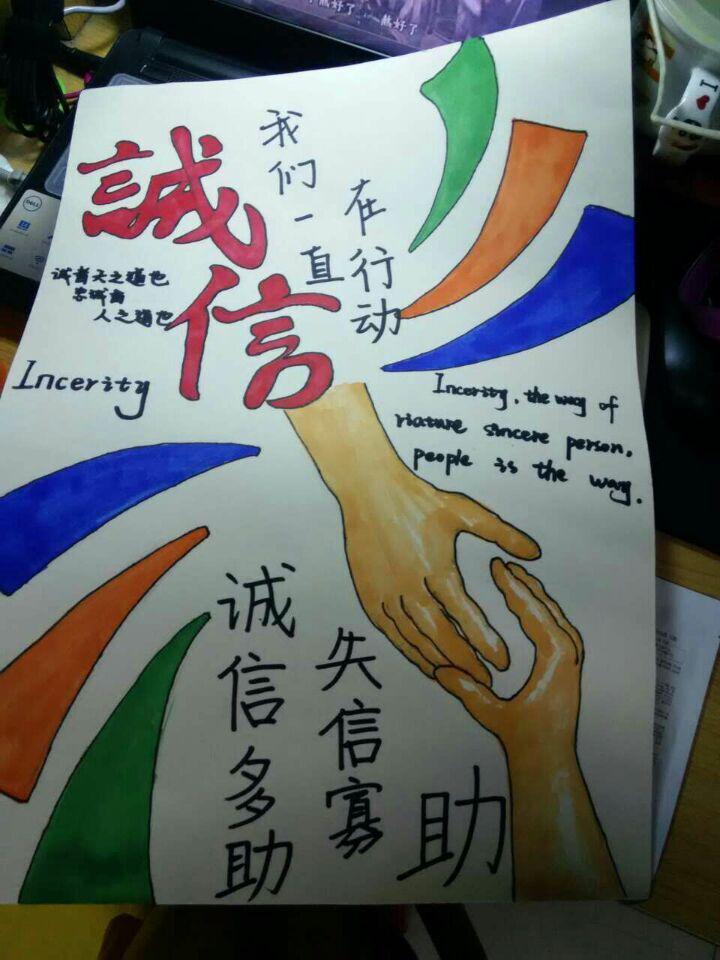 诚信
我们一直
在行动
诚者天之道也
思诚者
人之道也
Incerity
Incerity, the way of
riature sincere person,
people is the way.
诚信多助
失信寡
助
DELL